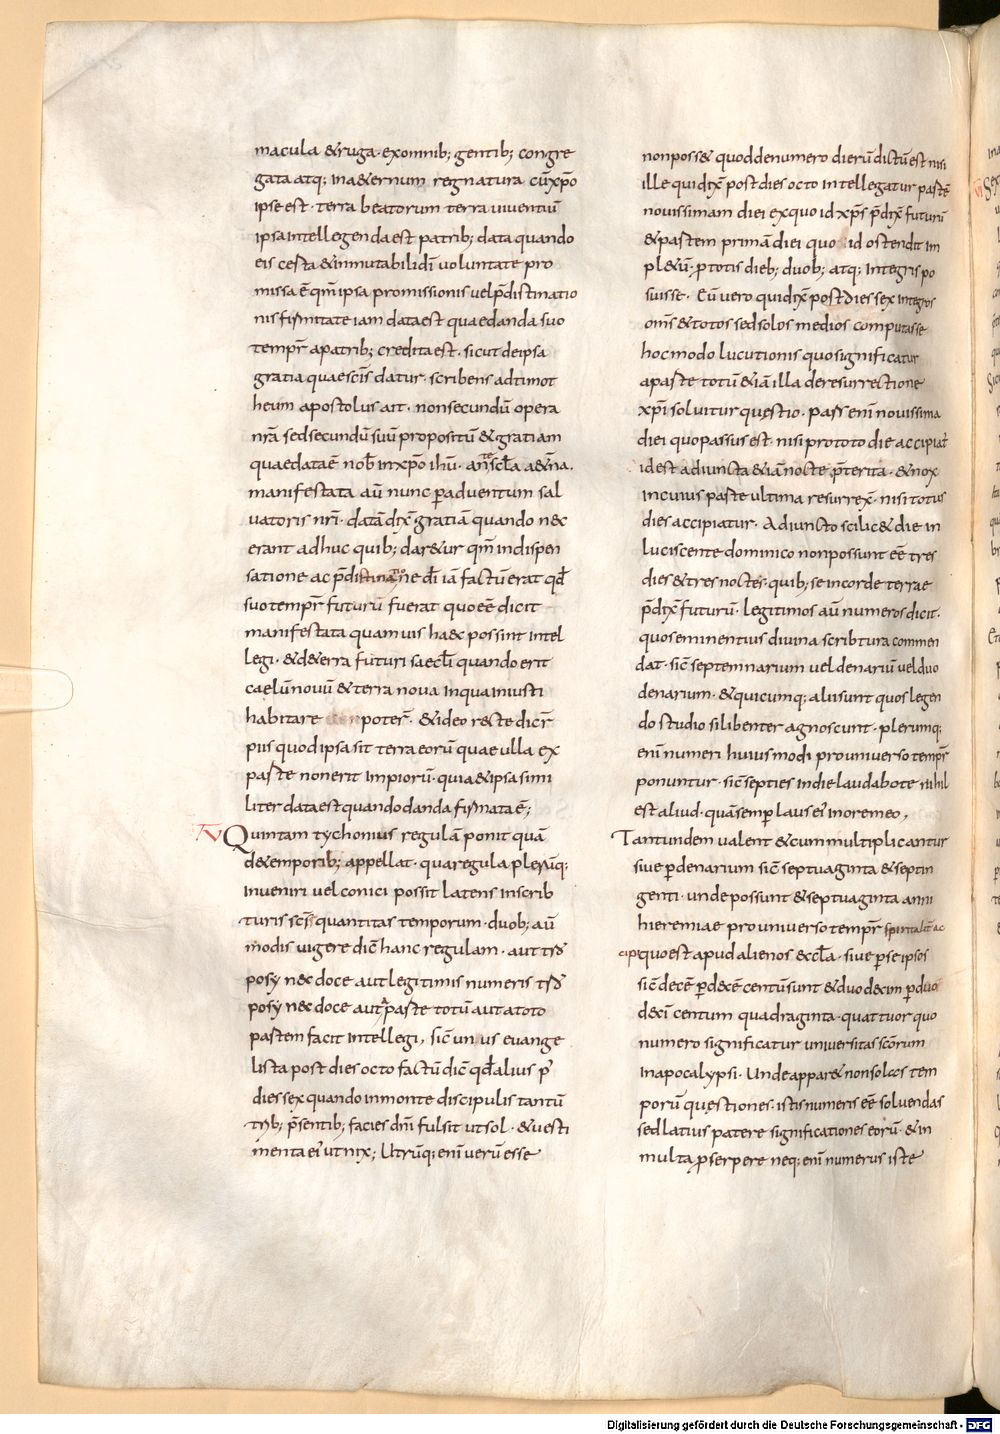 macula &ruga· exomnib; gentib; congre
gata atq; ina&ernum regnatura cu̅xp̅o
ipse est· terra beatorum terra viventiu̅
ipsa intellegenda est patrib; data quando
eis certa &inmutabili di̅ voluntate pro
missa e̅ qm̅ ipsa promissionis vel p̅distinatio
nis firmitate iam data est quae danda suo
tempr̅ a patrib; credita est· sicut de ipsa
gratia quae sc̅is datur· scribens ad timot
heum apostolus ait· non secundu̅ opera
nr̅a sed secundu̅ suu̅ propositu̅ &gratiam
quae data e̅ nob̅ in xp̅o ihu̅· ante scl̅a a&r̅na·
manifestata au̅ nunc per adventum sal
vatoris nr̅i· data̅ dix̅ gratia̅ quando nec
erant adhuc quib; dar&ur qm̅ in dispen
satione ac p̅distinatione di̅ ia̅ factu̅ erat qd̅
suo tempr̅ futuru̅ fuerat quo ee̅ dicit
manifestata quam vis haec possint intel
legi· &de terra futuri saecl̅i quando erit
caelu̅ novu̅ &terra nova in qua iniusti
habitare non poter̅· &ideo recte dicr̅
piis quod ipsa sit terra eoru̅ quae ulla ex
parte non erit impioru̅· quia &ipsa simi
liter data est quando danda firmata e̅;
IV Quintam tychonius regula̅ ponit qua̅
de temporib; appellat· qua regula pleru̅q;
inveniri vel conici possit latens in scrib
turis sc̅is quantitas temporum· duob; au̅
modis vigere dic̅ hanc regulam· aut
posy nec doce aut legitimis numeris
posy nec doce aut parte totu̅ aut a toto
partem facit intellegi, sic̅ unus evange
lista post dies octo factu̅ dic̅ qd̅ alius p̅
dies sex quando in monte discipulis tantu̅
trib; p̅sentib; facies dni̅ fulsit ut sol· &vesti
menta ei' ut nix; Utru̅q; eni̅ veru̅ esse
non poss& quod de numero dieru̅ dictu̅ est nisi
ille qui dix̅ post dies octo intellegatur parte̅
novissimam diei ex quo id xp̅s p̅dix̅ futuru̅
&partem prima̅ diei quo id ostendit im
pl&u̅· p totis dieb; duob; atq; integris po
suisse· Eu̅ vero qui dix̅ post dies sex integros
om̅s &totos sed solos medios computasse
hoc modo lucutionis quo significatur
a parte totu̅ &ia̅ illa de resurrectione
xp̅i solvitur quęstio· pars eni̅ novissima
diei quo passus est· nisi pro toto die accipiat̅
id est adiuncta &ia̅ nocte p̅terita· &nox
in cuius parte ultima resurrex̅· nisi totus
dies accipiatur· Adiuncto scilic& die in
luciscente dominico non possunt ee̅ tres
dies &tres noctes· quib; se in corde terrae
p̅dix̅ futuru̅· legitimos au̅ numeros dicit·
quos eminentius divina scribtura commen
dat· sic̅ septemnarium vel denariu̅ vel duo
denarium· &quicumq; alii sunt quos legen
do studiosi libenter agnoscunt· plerumq;
eni̅ numeri huius modi pro universo tempr̅
ponuntur· sic̅ septies in die laudabo te nihil
est aliud· qua̅ semp laus ei' in ore meo,
Tantundem valent &cum multiplicantur
sive p denarium sic̅ septuaginta &septin
genti· unde possunt &septuaginta anni
hieremiae pro universo tempr̅ spiritalit̅ ac
cipi quo est apud alienos eccl̅a· sive p se ipsos
sic̅ dece̅ p dece̅ centu̅ sunt &duodecim p duo
deci̅ centum quadraginta· quattuor quo
numero significatur universitas sc̅orum
in apocalypsi· Unde appar& non solos tem
poru̅ quęstiones· istis numeris ee̅ solvendas
sed latius patere significationes eoru̅· &in
multa pserpere neq; eni̅ numerus iste
VI
Digitalisierung gefördert durch die Deutsche Forschungsgemeinschaft - DFG